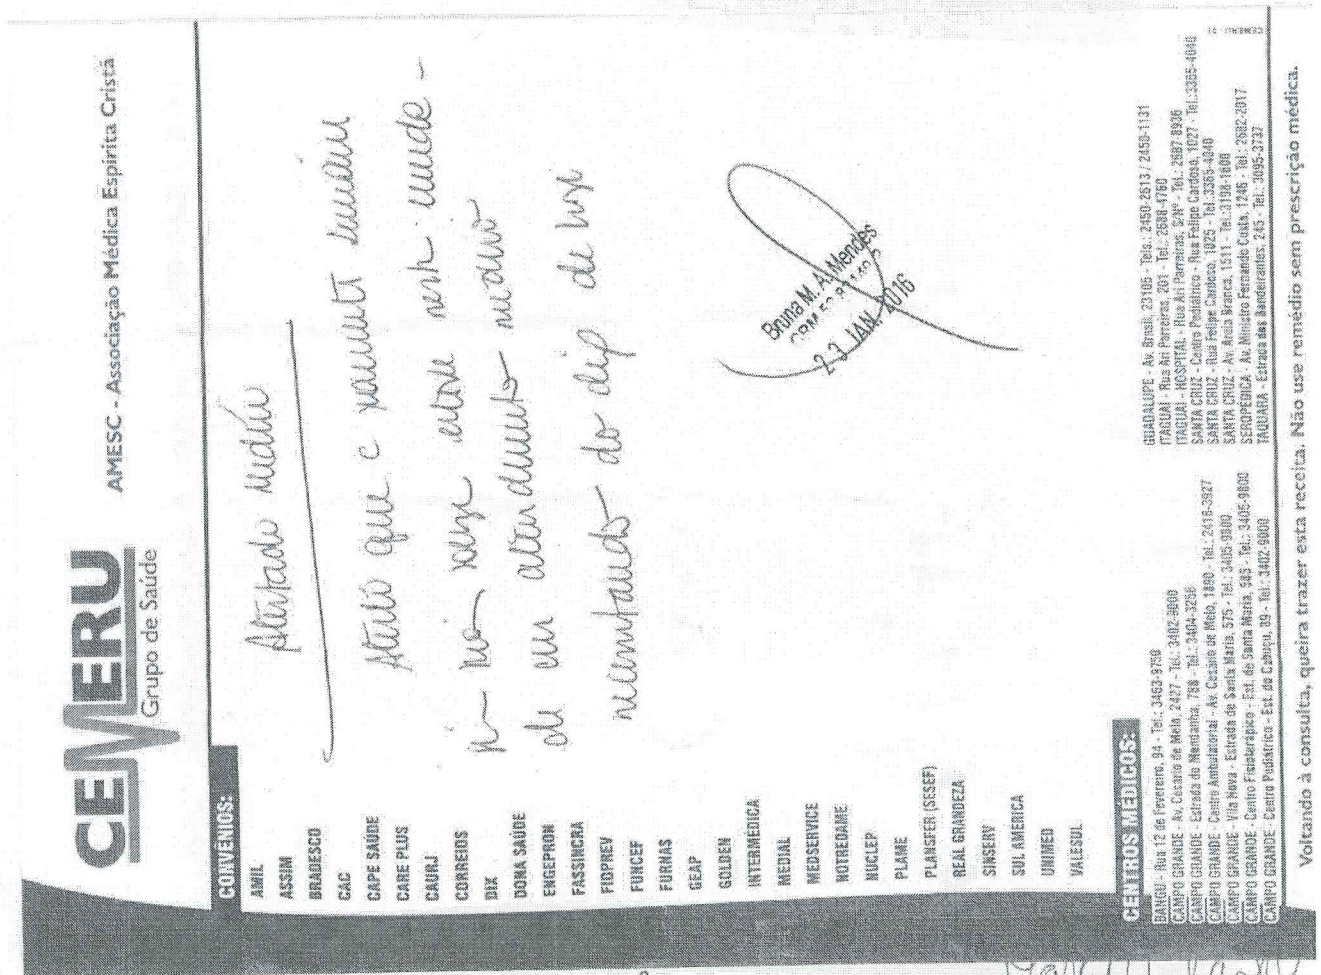 CEMERU
Grupo de Saúde
AMESC - Associação Médica Espírita Cristã
CONVÊNIOS:
AMIL
ASSIM
BRADESCO
CAC
CAPE SAÚDE
CARE PLUS
CAURJ
CORREIOS
DIX
DONA SAÚDE
ENGEPRON
FASSINCRA
FIOPREV
FUNCEF
FURNAS
GEAP
GOLDEN
INTERMÉDICA
MEDIAL
MEDSERVICE
NOTREDAME
NUCLEP
PLAME
PLANSFER (SESEF)
REAL GRANDEZA
SINSERV
SUL AMÉRICA
UNIMED
VALESUL
Atestado médico
Atesto que o paciente
esteve
de em atendimento médico
necessitando do dia de hoje
Bruna M. A. Mendes
23 JAN. 2016
CENTROS MÉDICOS:
BANGU - Rua 12 de Fevereiro, 94 - Tel.: 3463-9750
CAMPO GRANDE - Av. Cesário de Melo, 2427 - Tel.: 3402-9000
CAMPO GRANDE - Estrada do Mendanha, 788 - Tel.: 3404-3256
CAMPO GRANDE - Centro Ambulatorial - Av. Cesário de Melo, 1890 - Tel.: 2416-3927
CAMPO GRANDE - Vila Nova - Estrada de Santa Maria, 575 - Tel.: 3405-9800
CAMPO GRANDE - Centro Fisioterápico - Est. de Santa Maria, 585 - Tel.: 3405-9800
CAMPO GRANDE - Centro Pediátrico - Est. do Cabuçu, 89 - Tel.: 3402-9000
GUADALUPE - Av. Brasil, 23105 - Tels.: 2450-2613 / 2450-1131
ITAGUAI - Rua Ari Parreiras, 201 - Tel.: 2688-4760
ITAGUAI - HOSPITAL - Rua Ari Parreiras, S/Nº - Tel.: 2687-8936
SANTA CRUZ - Centro Pediátrico - Rua Felipe Cardoso, 1027 - Tel.:3365-4040
SANTA CRUZ - Rua Felipe Cardoso, 1025 - Tel.:3365-4040
SANTA CRUZ - Av. Areia Branca, 1511 - Tel.:3198-1600
SEROPÉDICA - Av. Ministro Fernando Costa, 1246 - Tel.: 2682-2017
TAQUARA - Estrada dos Bandeirantes, 245 - Tel.: 3095-3737
CEMERU - 01
Voltando à consulta, queira trazer esta receita. Não use remédio sem prescrição médica.